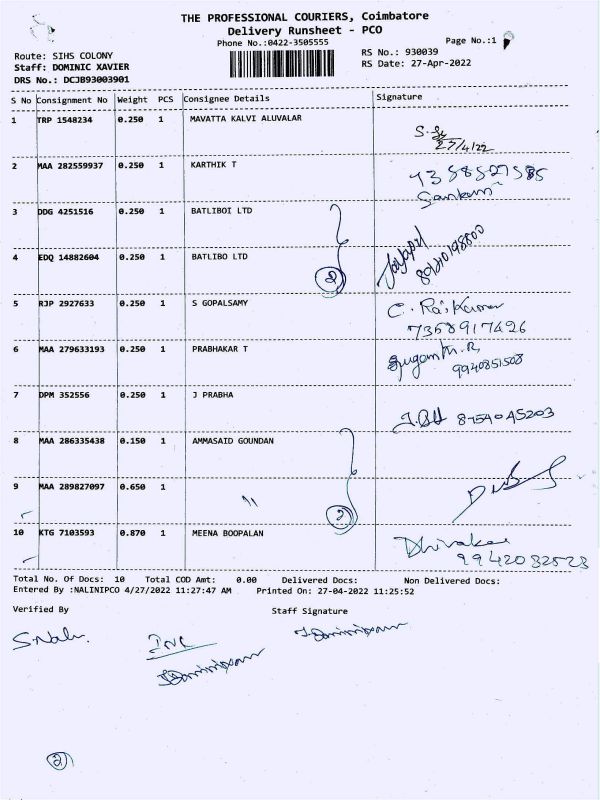 THE PROFESSIONAL COURIERS, Coimbatore
Delivery Runsheet - PCO
Phone No.:0422-3505555
Page No.:1
Route: SIHS COLONY
RS No.: 930039
Staff: DOMINIC XAVIER
RS Date: 27-Apr-2022
DRS No.: DCJB93003901
S No Consignment No Weight PCS Consignee Details Signature
1 TRP 1548234 0.250 1 MAVATTA KALVI ALUVALAR
27/4/22
2 MAA 282559937 0.250 1 KARTHIK T
3 DDG 4251516 0.250 1 BATLIBOI LTD
4 EDQ 14882604 0.250 1 BATLIBO LTD
2
5 RJP 2927633 0.250 1 S GOPALSAMY
7358917426
6 MAA 279633193 0.250 1 PRABHAKAR T
9940851508
7 DPM 352556 0.250 1 J PRABHA
8754045203
8 MAA 286335438 0.150 1 AMMASAID GOUNDAN
9 MAA 289827097 0.650 1 "
2
10 KTG 7103593 0.870 1 MEENA BOOPALAN
Total No. Of Docs: 10 Total COD Amt: 0.00 Delivered Docs: Non Delivered Docs:
Entered By :NALINIPCO 4/27/2022 11:27:47 AM Printed On: 27-04-2022 11:25:52
Verified By Staff Signature
2